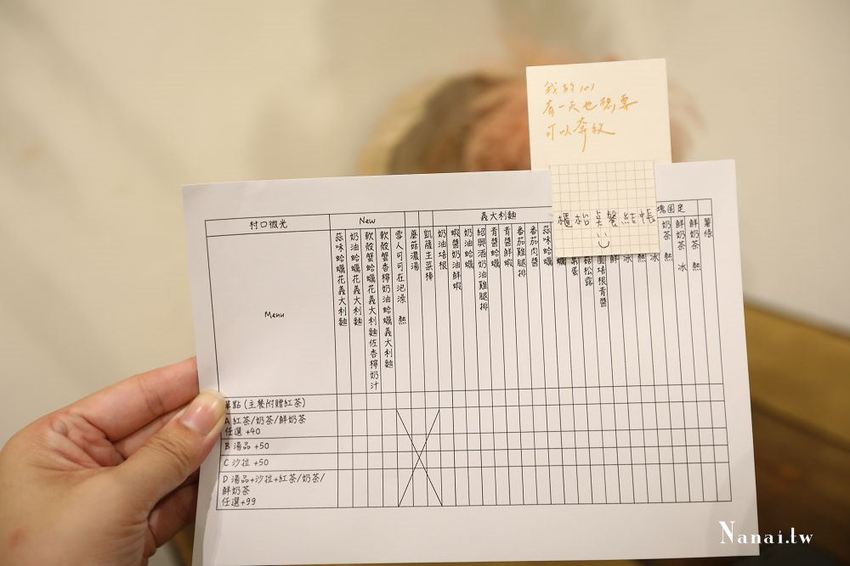 我的101
有一天也總要
可以奔紋
櫃檯點餐結帳
村口微光
New
義大利麵
塊固定
Menu
蒜味蛤蠣花義大利麵
奶油蛤蠣花義大利麵
軟殼蟹蛤蠣花義大利麵佐杏檸奶汁
軟殼蟹杏檸奶油蛤蠣義大利麵
雪人可可在泡澡 熱
蘑菇濃湯
凱薩生菜棒
奶油培根
蝦醬奶油鮮蝦
奶油蛤蠣
紹興酒奶油雞腿排
青醬蛤蠣
青醬鮮蝦
番茄雞腿排
番茄肉醬
蒜味蛤蠣
菇松露
培根青醬
鮮
冰
熱
冰
奶茶 熱
鮮奶茶 冰
鮮奶茶 熱
薯條
單點(主餐附贈紅茶)
A 紅茶/奶茶/鮮奶茶
任選+40
B 湯品 +50
C 沙拉 +50
D 湯品+沙拉+紅茶/奶茶/
鮮奶茶
任選+99
Nanai.tw